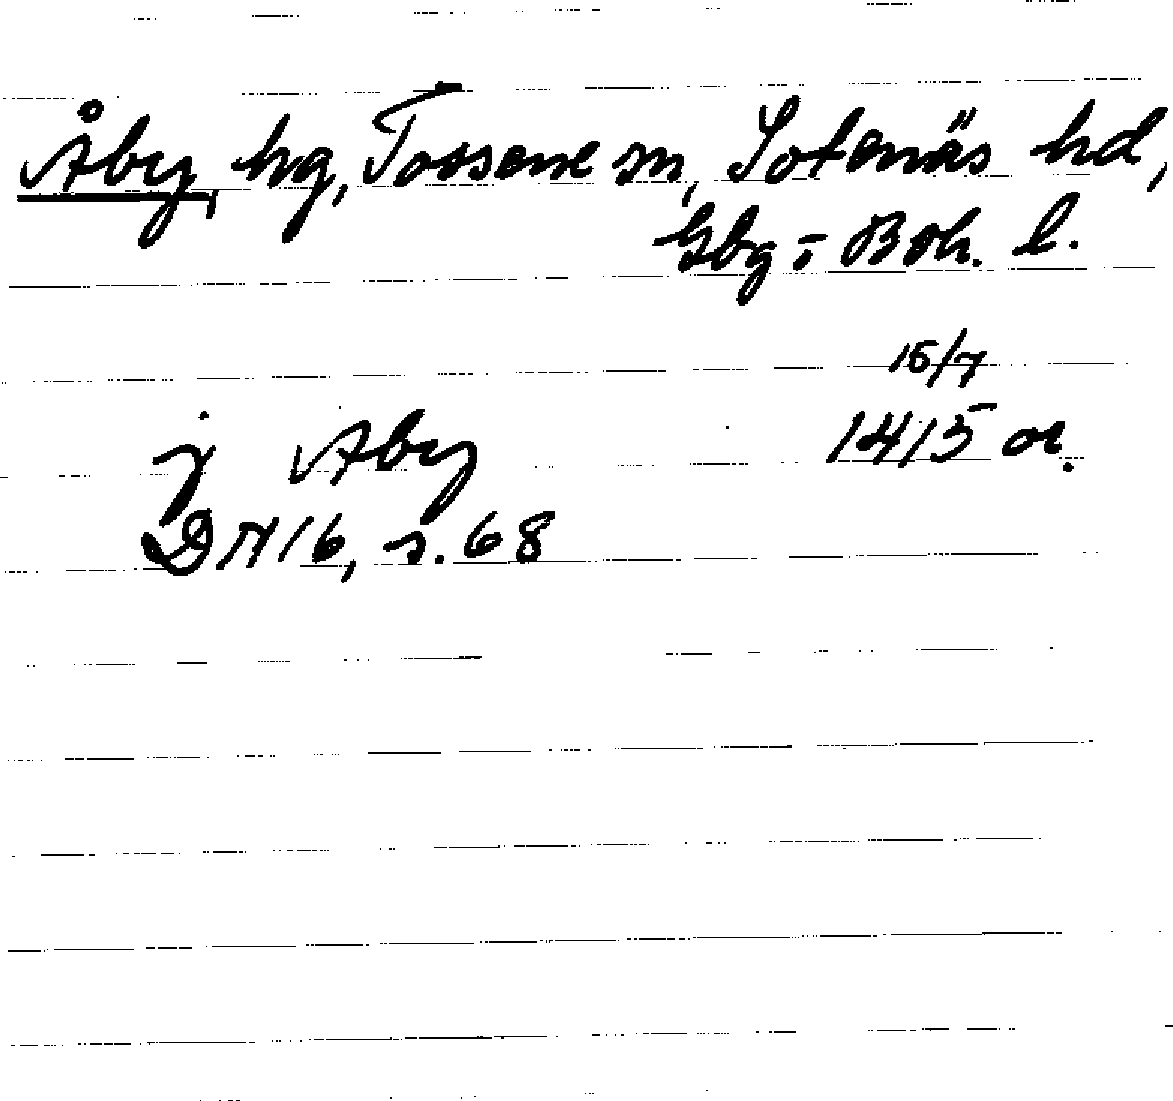 Åby, hg, Tossene sn, Sotenäs hd,
Gbg o Boh. l.
15/7
j Aby 1415 or.
DN 16, s. 68